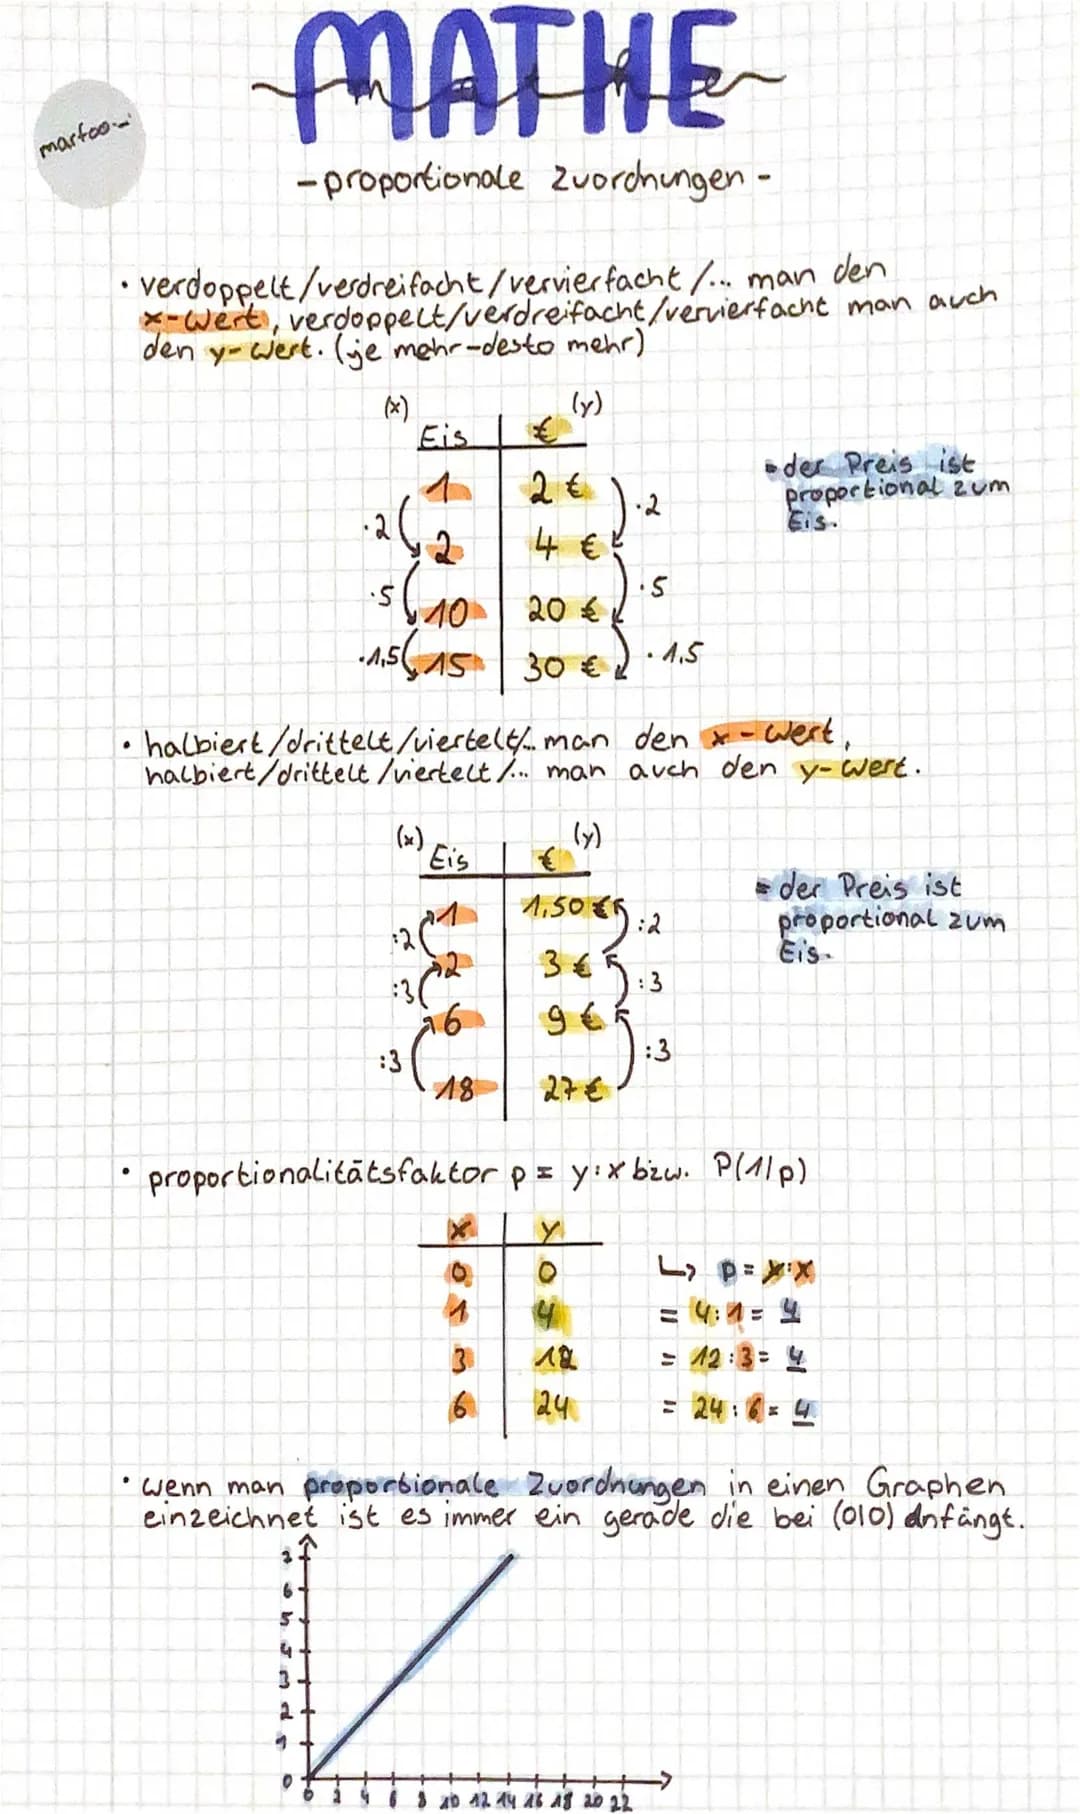 MATHE
mathe
marfoo._
- proportionale Zuordnungen -
• verdoppelt/verdreifacht/vervierfacht/... man den
x-Wert, verdoppelt/verdreifacht/vervierfacht man auch
den y-Wert. (je mehr-desto mehr)
(x) (y)
Eis €
1 2 €
·2 ·2
2 4 €
·5 ·5
10 20 €
·1,5 ·1,5
15 30 €
= der Preis ist
proportional zum
Eis.
• halbiert/drittelt/viertelt/... man den x-Wert,
halbiert/drittelt/viertelt/... man auch den y-Wert.
(x) (y)
Eis €
1 1,50 €
:2 :2
2 3 €
:3 :3
6 9 €
:3 :3
18 27 €
= der Preis ist
proportional zum
Eis.
• proportionalitätsfaktor p = y:x bzw. P(1/p)
x y
0 0 ↳ p = y:x
1 4 = 4:1 = 4
3 12 = 12:3 = 4
6 24 = 24:6 = 4
• wenn man proportionale Zuordnungen in einen Graphen
einzeichnet ist es immer ein gerade die bei (0|0) anfängt.
7
6
5
4
3
2
1
0
0 2 4 6 8 10 12 14 16 18 20 22